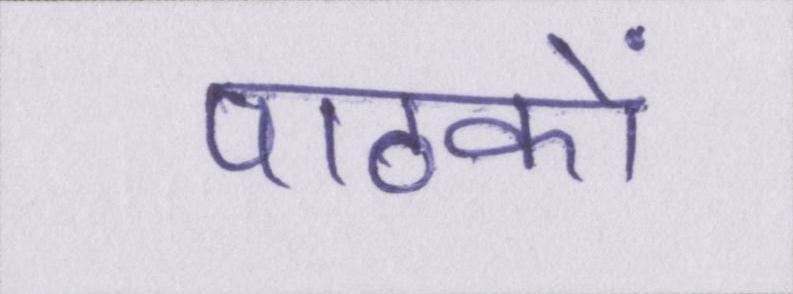 पाठकों